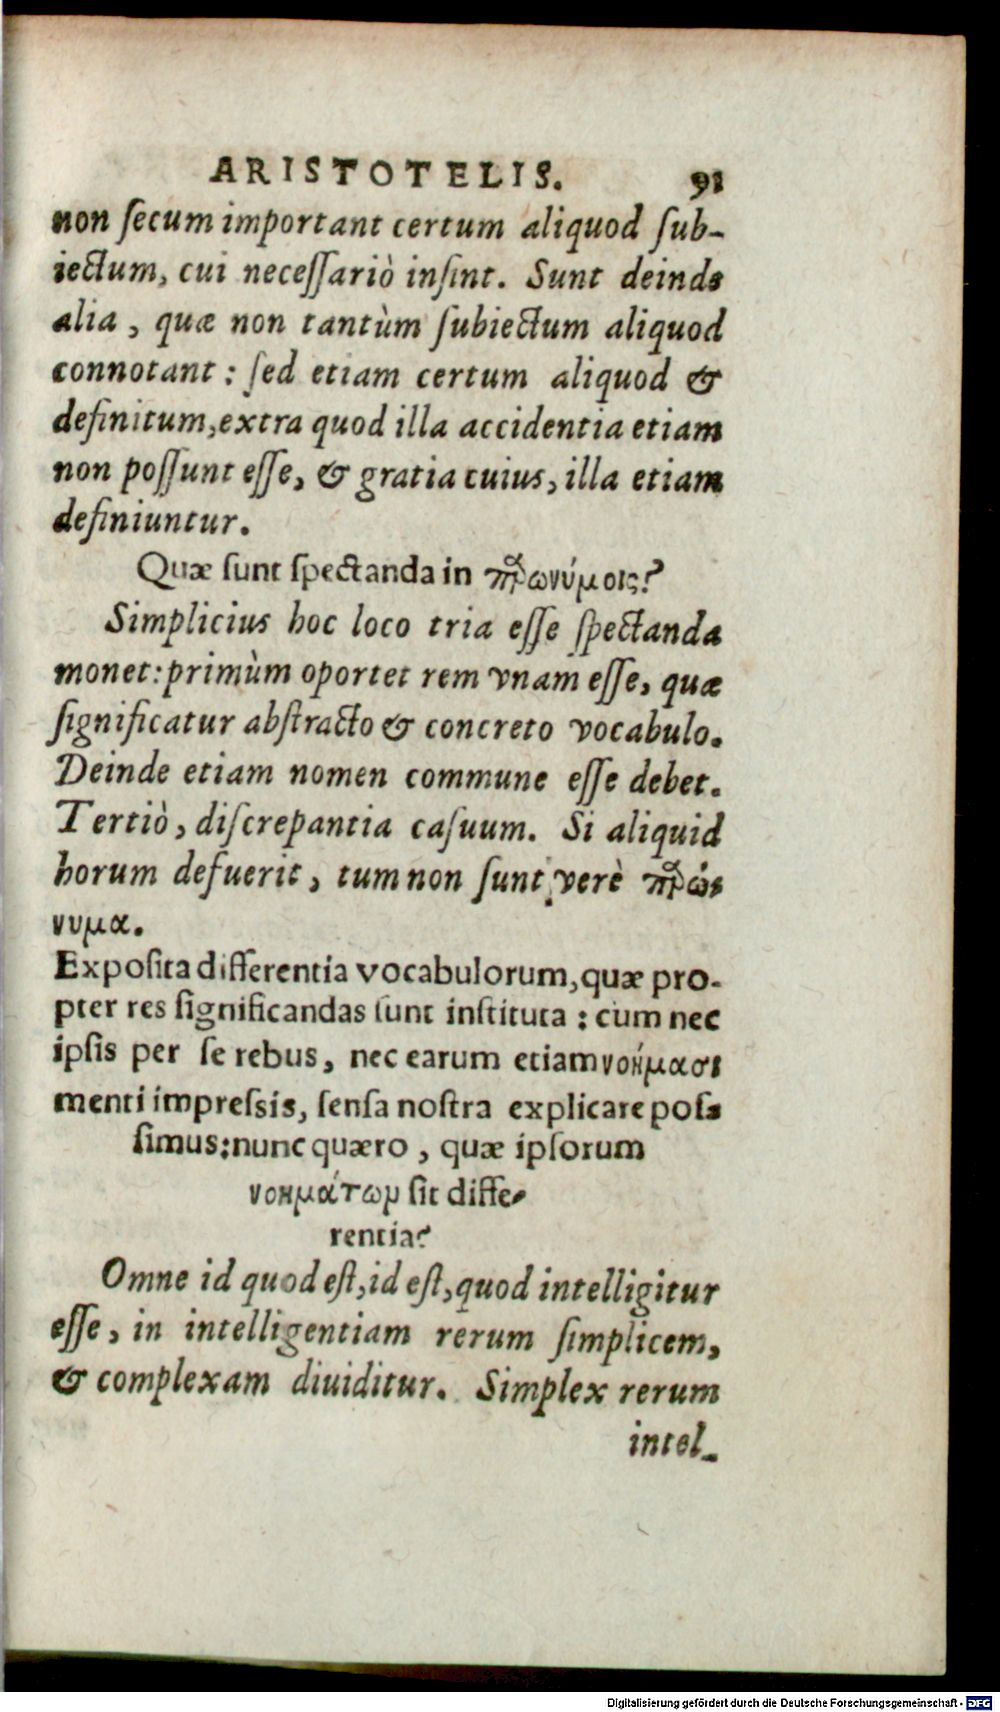 ARISTOTELIS. 91
non ſecum important certum aliquod ſub-
iectum, cui neceſſariò inſint. Sunt deinde
alia, quæ non tantùm ſubiectum aliquod
connotant: ſed etiam certum aliquod &
definitum, extra quod illa accidentia etiam
non poſſunt eſſe, & gratia cuius, illa etiam
definiuntur.
Quæ ſunt ſpectanda in παρωνύμοις?
Simplicius hoc loco tria eſſe ſpectanda
monet: primùm oportet rem vnam eſſe, quæ
ſignificatur abſtracto & concreto vocabulo.
Deinde etiam nomen commune eſſe debet.
Tertiò, diſcrepantia caſuum. Si aliquid
horum defuerit, tum non ſunt verè παρώ-
νυμα.
Expoſita differentia vocabulorum, quæ pro-
pter res ſignificandas ſunt inſtituta: cùm nec
ipſis per ſe rebus, nec earum etiam νοήμασι
menti impreſsis, ſenſa noſtra explicare poſ-
ſimus: nunc quæro, quæ ipſorum
νοημάτων ſit diffe-
rentia?
Omne id quod eſt, id eſt, quod intelligitur
eſſe, in intelligentiam rerum ſimplicem,
& complexam diuiditur. Simplex rerum
intel-
Digitalisierung gefördert durch die Deutsche Forschungsgemeinschaft - DFG